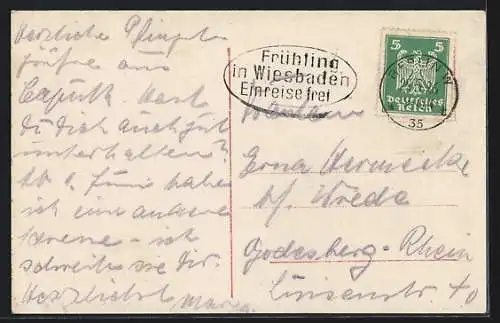 Herzliche Pfingst-
grüße aus
Caputh. Hast
Du Dich auch gut
unterhalten?
Ab 1. Juni habe
ich eine andere
Adresse - ich
schreibe sie Dir.
Herzlichst Maria.
Frühling
in Wiesbaden
Einreise frei
5 5
Deutsches
Reich
W
35
Erna Hermecke
bf. Wrede
Godesberg-Rhein
40